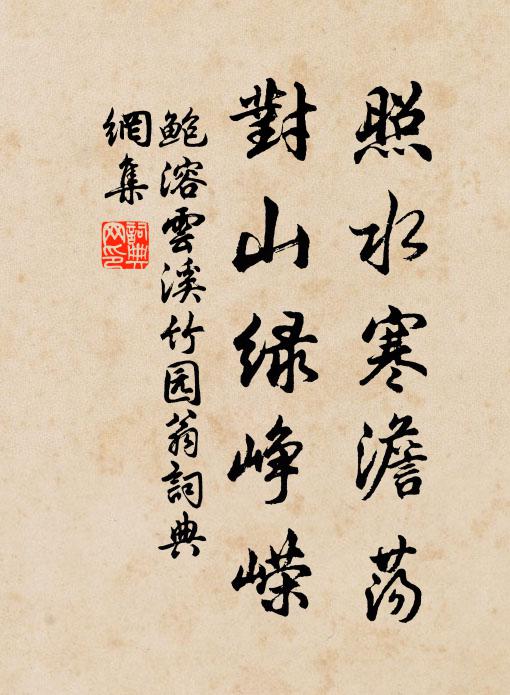 照水寒澹荡
對山绿峥嵘
鲍溶雲溪竹园翁詞典
網集
詞典
网印